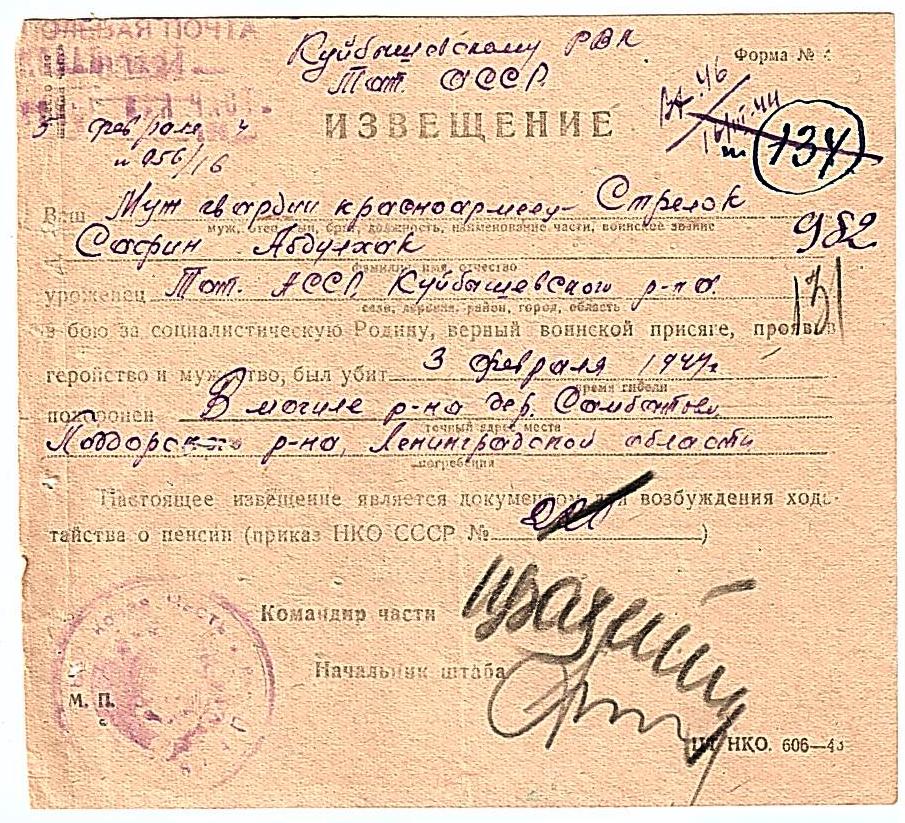 Куйбышевскому РВК
Тат. АССР.
Форма №
5 февраля
и 056/16
ИЗВЕЩЕНИЕ
134
Ваш Муж гвардии красноармеец- Стрелок
муж, отец, сын, брат, должность, наименование части, воинское звание
Сафин Абдулхак
982
фамилия, имя, отчество
уроженец Тат. АССР, Куйбышевского р-на
село, деревня, район, город, область
131
в бою за социалистическую Родину, верный воинской присяге, проявив
геройство и мужество, был убит 3 февраля 1944г
время гибели
похоронен В могиле р-на дер.
точный адрес места
Поддорского р-на, Ленинградской области
погребения
Настоящее извещение является документом для возбуждения хода-
тайства о пенсии (приказ НКО СССР № 220)
Командир части
Начальник штаба
М. П.
НКО. 606—43